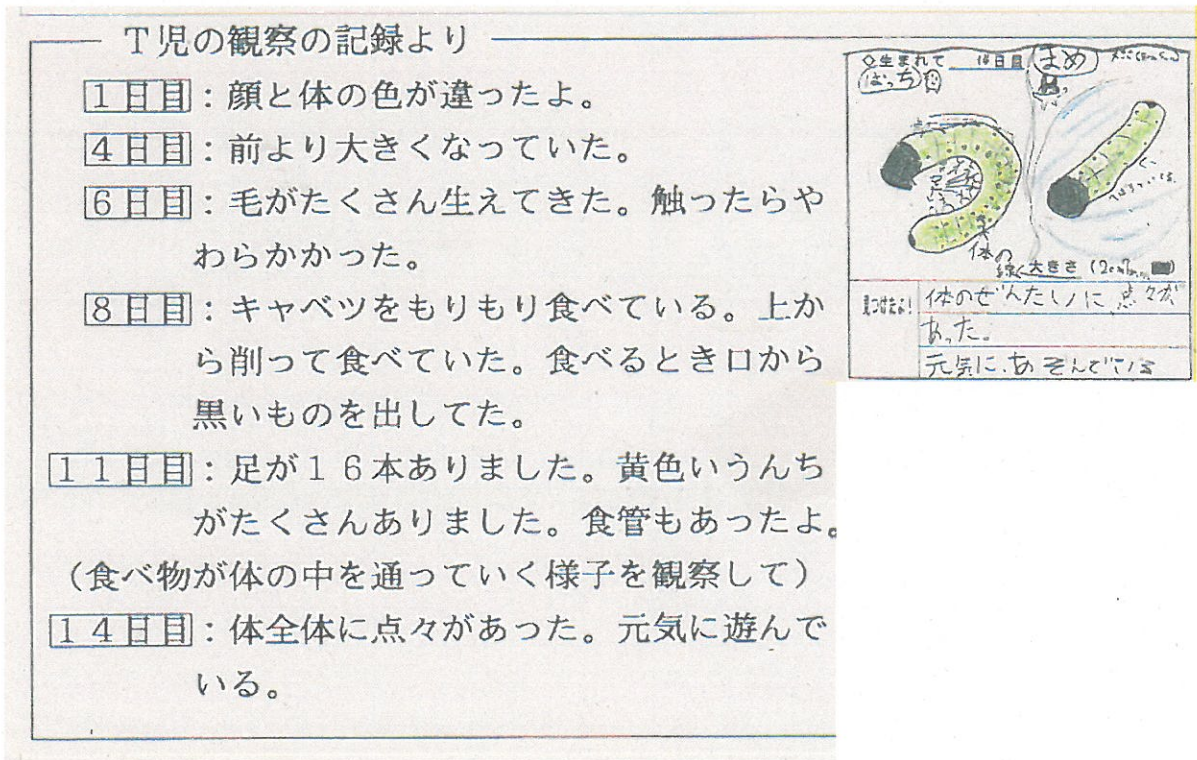 T児の観察の記録より
1日目：顔と体の色が違ったよ。
4日目：前より大きくなっていた。
6日目：毛がたくさん生えてきた。触ったらや
わらかかった。
8日目：キャベツをもりもり食べている。上か
ら削って食べていた。食べるとき口から
黒いものを出してた。
11日目：足が16本ありました。黄色いうんち
がたくさんありました。食管もあったよ。
（食べ物が体の中を通っていく様子を観察して）
14日目：体全体に点々があった。元気に遊んで
いる。
◇生まれて 14日目
はっち
まめ
体の
大きさ
見つけたよ！
体のぜんたいに点々が
あった。
元気に、あそんでいる